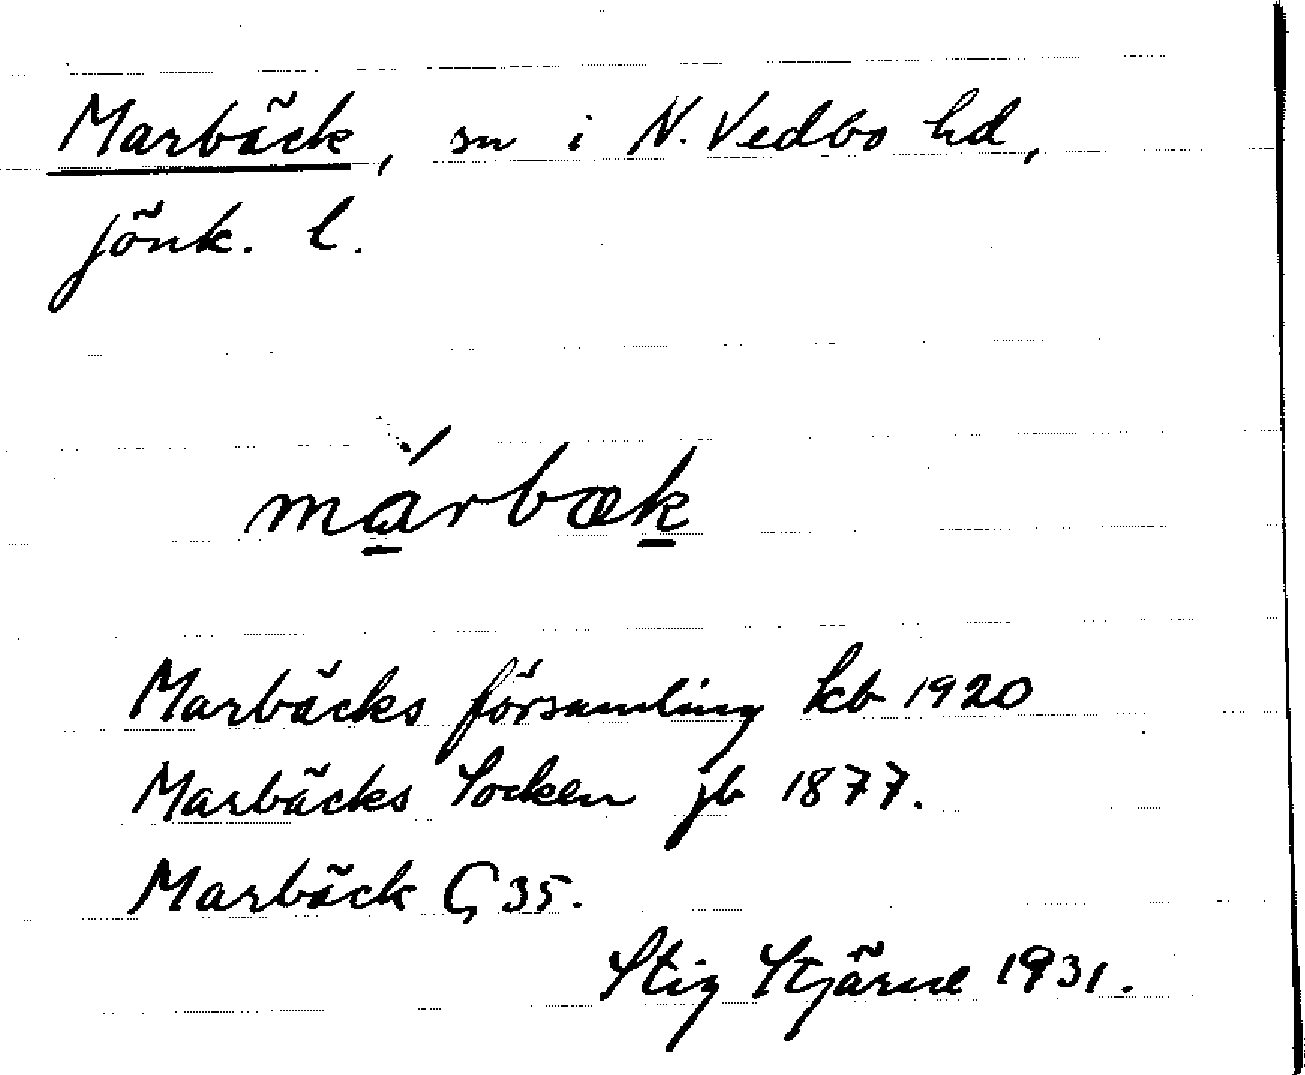 Marbäck, sn i N. Vedbo hd,
Jönk. l.
márbæk
Marbäcks församling kb 1920
Marbäcks Socken jb 1877.
Marbäck G 35.
Stig Stjärne 1931.